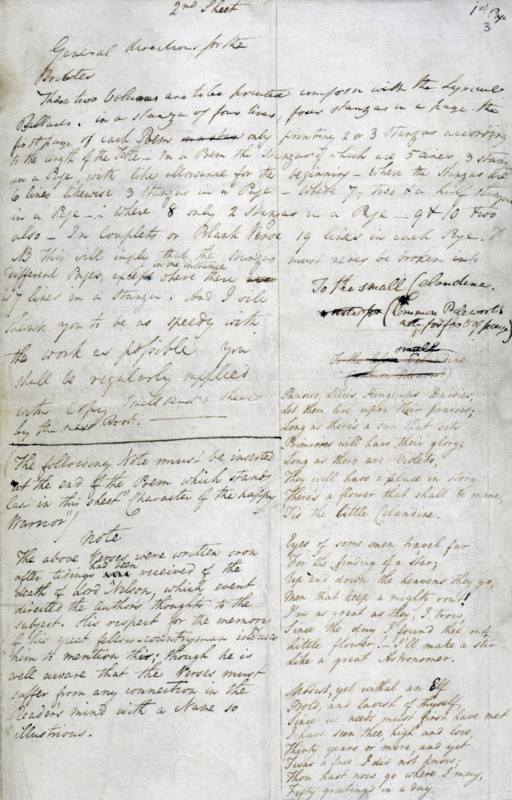 2nd Sheet
1st Page
3
General directions for the
Printer
These two Volumes are to be printed uniform with the Lyrical
Ballads. in a stanza of four lines, four stanzas in a page. the
first page of each Poem only printing 2 or 3 Stanzas according
to the length of the Title – In a Poem the Stanzas of which are 5 lines, 3 stanzas
in a Page with like allowance for the beginning – Where the Stanzas are
6 lines likewise 3 Stanzas in a Page – Where 7, two & a half stanzas
in a Page –: Where 8 only 2 Stanzas in a Page – 9 & 10 two
also – In Couplets or Blank Verse 19 lines in each Page.
NB This will imply that the Stanzas must never be broken into
different Pages, except in the instance where there are
7 lines in a Stanza. And I will
thank you to be as speedy with
the work as possible You
shall be regularly supplied
with Copy. I will send a sheet
by the next Post.
(The following Note must be inserted
at the end of the Poem which stands
last in this sheet "Character of the happy
Warrior")
Note
The above Verses were written soon
after tidings had been received of the
death of Lord Nelson, which event
directed the Author's thoughts to the
subject. His respect for the memory
of his great fellow-countryman induces
him to mention this; though he is
well aware that the Verses must
suffer from any connection in the
Reader's mind with a Name so
illustrious.
To the small Celandine.
(Common Pilewort
small
To the Celandine
Pansies, Lilies, Kingcups, Daisies,
Let them live upon their praises;
Long as there's a sun that sets
Primroses will have their glory;
Long as there are Violets,
They will have a place in story
There's a flower that shall be mine,
'Tis the little Celandine.
Eyes of some men travel far
For the finding of a star;
Up and down the heavens they go,
Men that keep a mighty rout!
I'm as great as they, I trow,
Since the day I found thee out,
Little flower! – I'll make a stir
Like a great Astronomer.
Modest, yet withal an Elf
Bold, and lavish of thyself,
Since we needs must first have met
I have seen thee, high and low,
Thirty years or more, and yet
'Twas a face I did not know;
Thou hast now, go where I may,
Fifty greetings in a day.